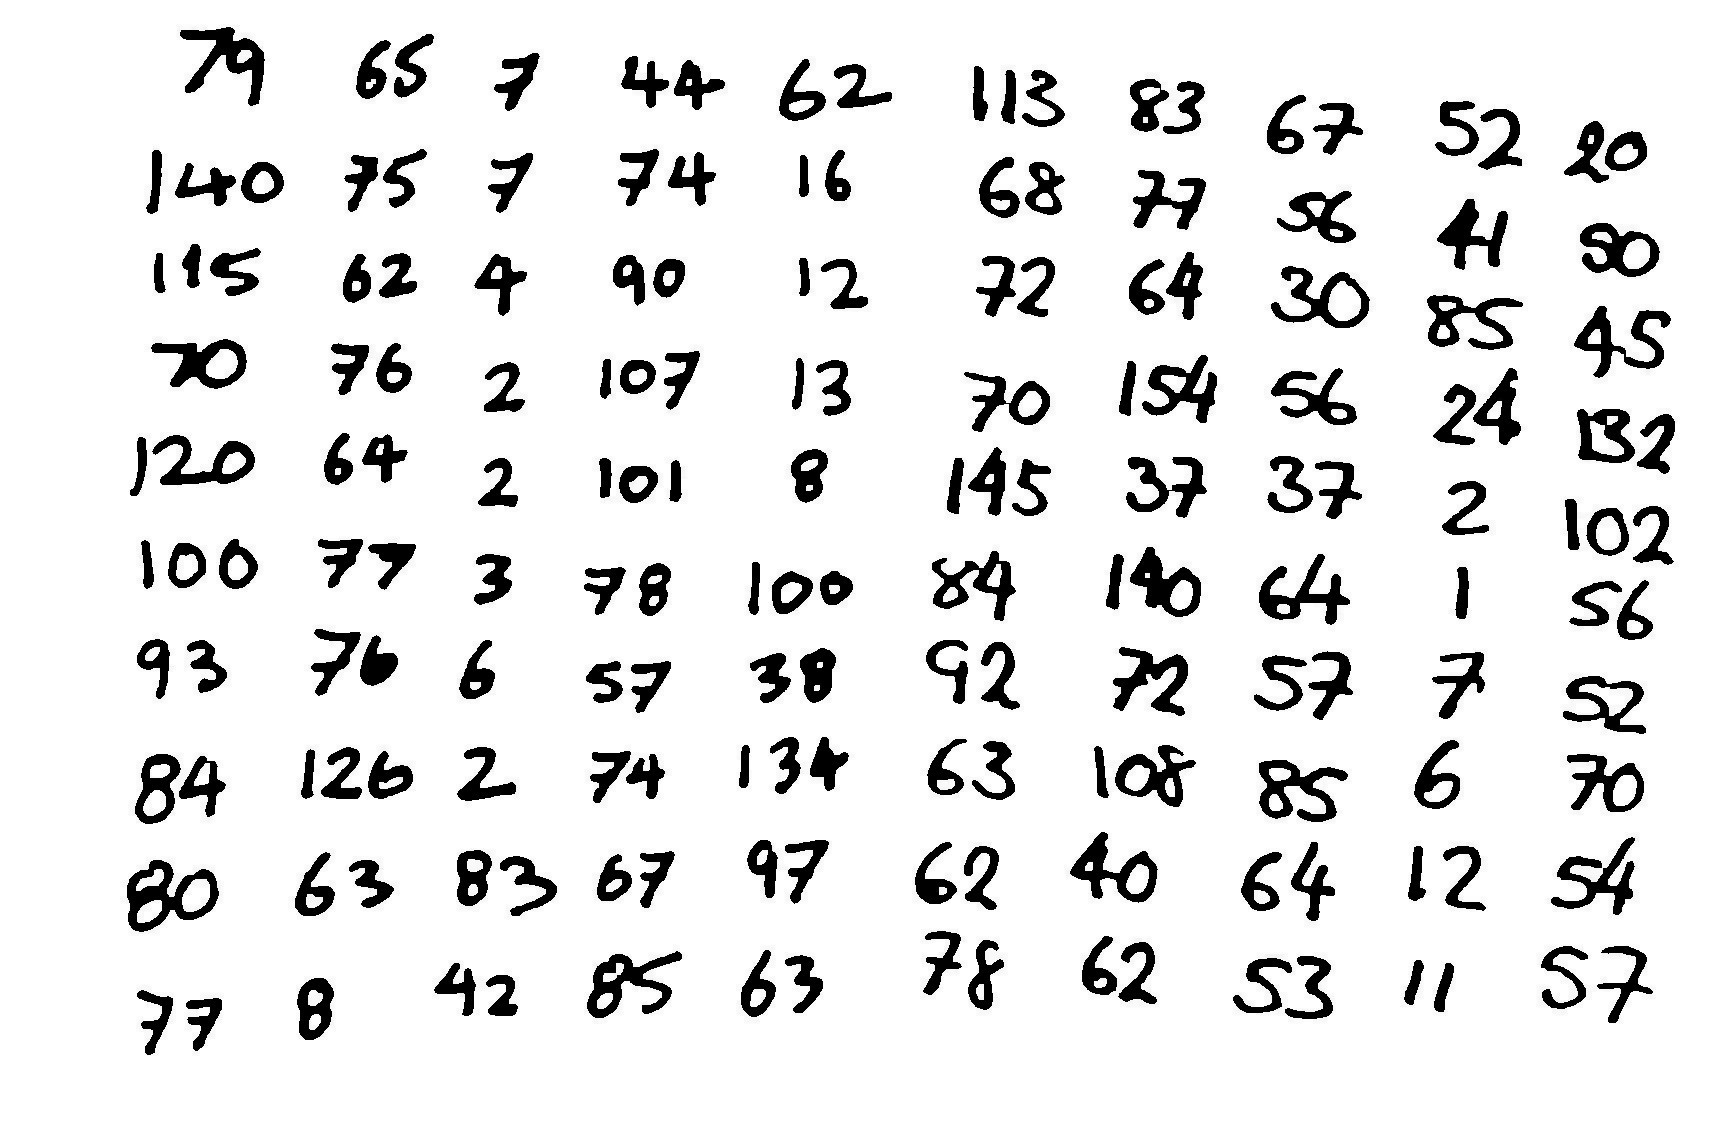 79 65 7 44 62 113 83 67 52 20
140 75 7 74 16 68 77 56 41 50
115 62 4 90 12 72 64 30 85 45
70 76 2 107 13 70 154 56 24 132
120 64 2 101 8 145 37 37 2 102
100 77 3 78 100 84 140 64 1 56
93 76 6 57 38 92 72 57 7 52
84 126 2 74 134 63 108 85 6 70
80 63 83 67 97 62 40 64 12 54
77 8 42 85 63 78 62 53 11 57